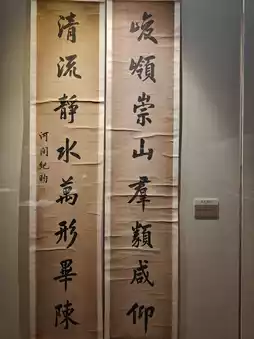 峻嶺崇山羣類咸仰
清流靜水萬形畢陳
河间纪昀